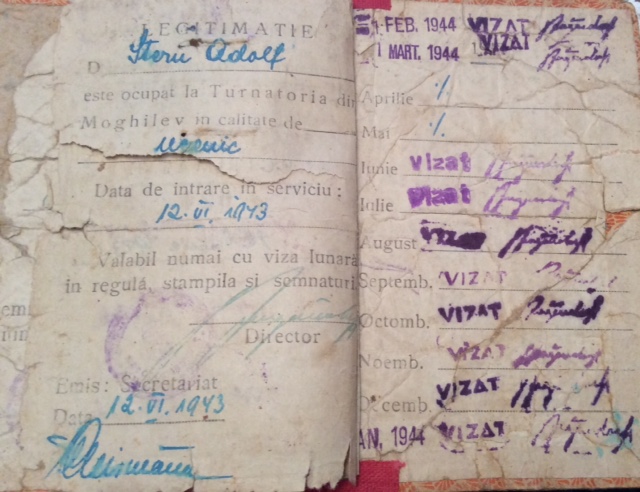 LEGITIMATIE
D Stern Adolf
este ocupat la Turnatoria din
Moghilev in calitate de
ucenic
Data de intrare in serviciu:
12.VI.1943
Valabil numai cu viza lunară
in regulă, stampila si semnaturi
Director
Emis: Secretariat
Data 12.VI.1943
1 FEB. 1944 VIZAT
1 MART. 1944 VIZAT
Aprilie ·/.
Mai ·/.
Iunie Vizat
Iulie Vizat
August Vizat
Septemb. VIZAT
Octomb. VIZAT
Noemb. VIZAT
Decemb. VIZAT
AN, 1944 VIZAT